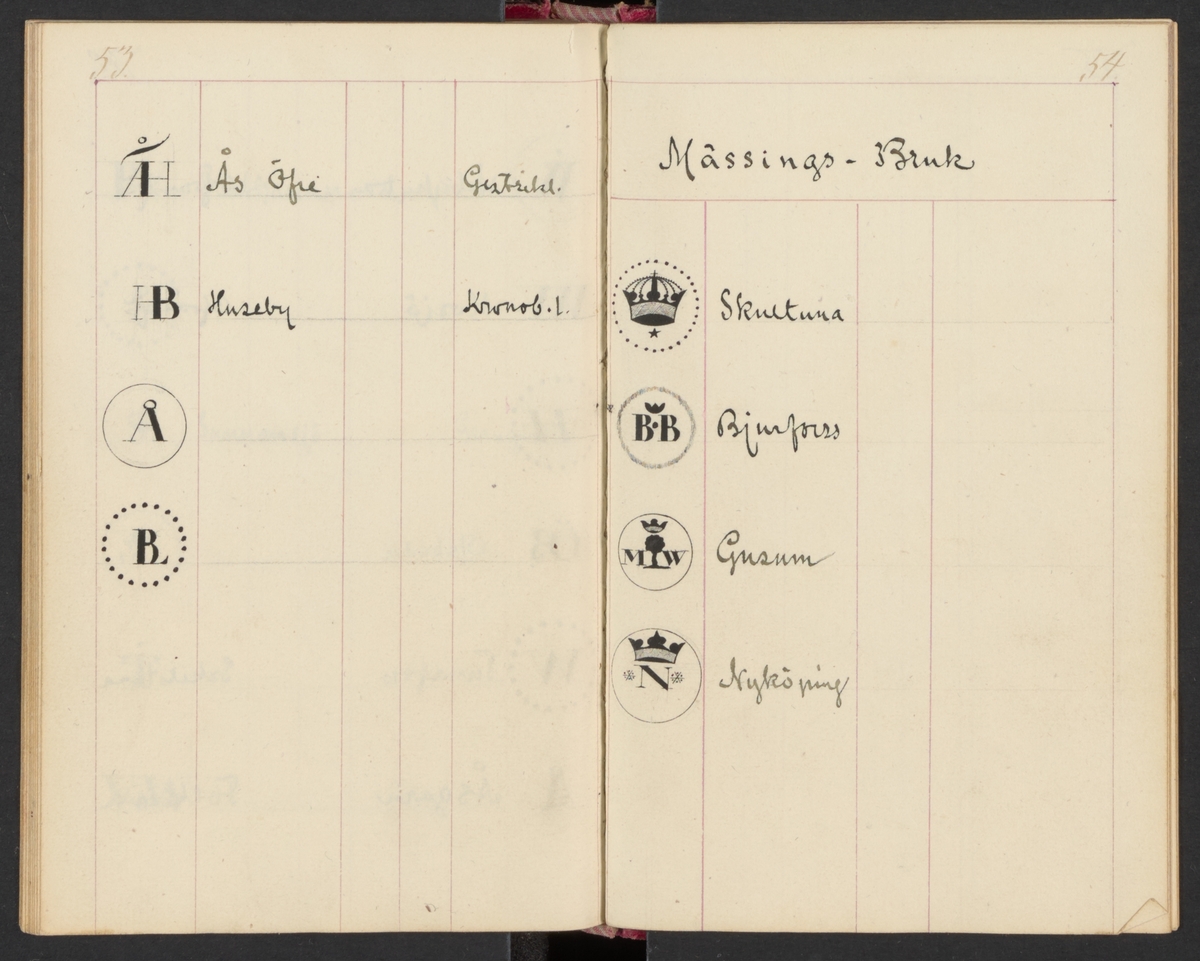 53
ÅH Ås Öfre Gestrikl.
HB Huseby Kronob. l.
Å
BL
54
Mässings-Bruk
Skultuna
B·B Bjurfors
M W Gusum
N Nyköping